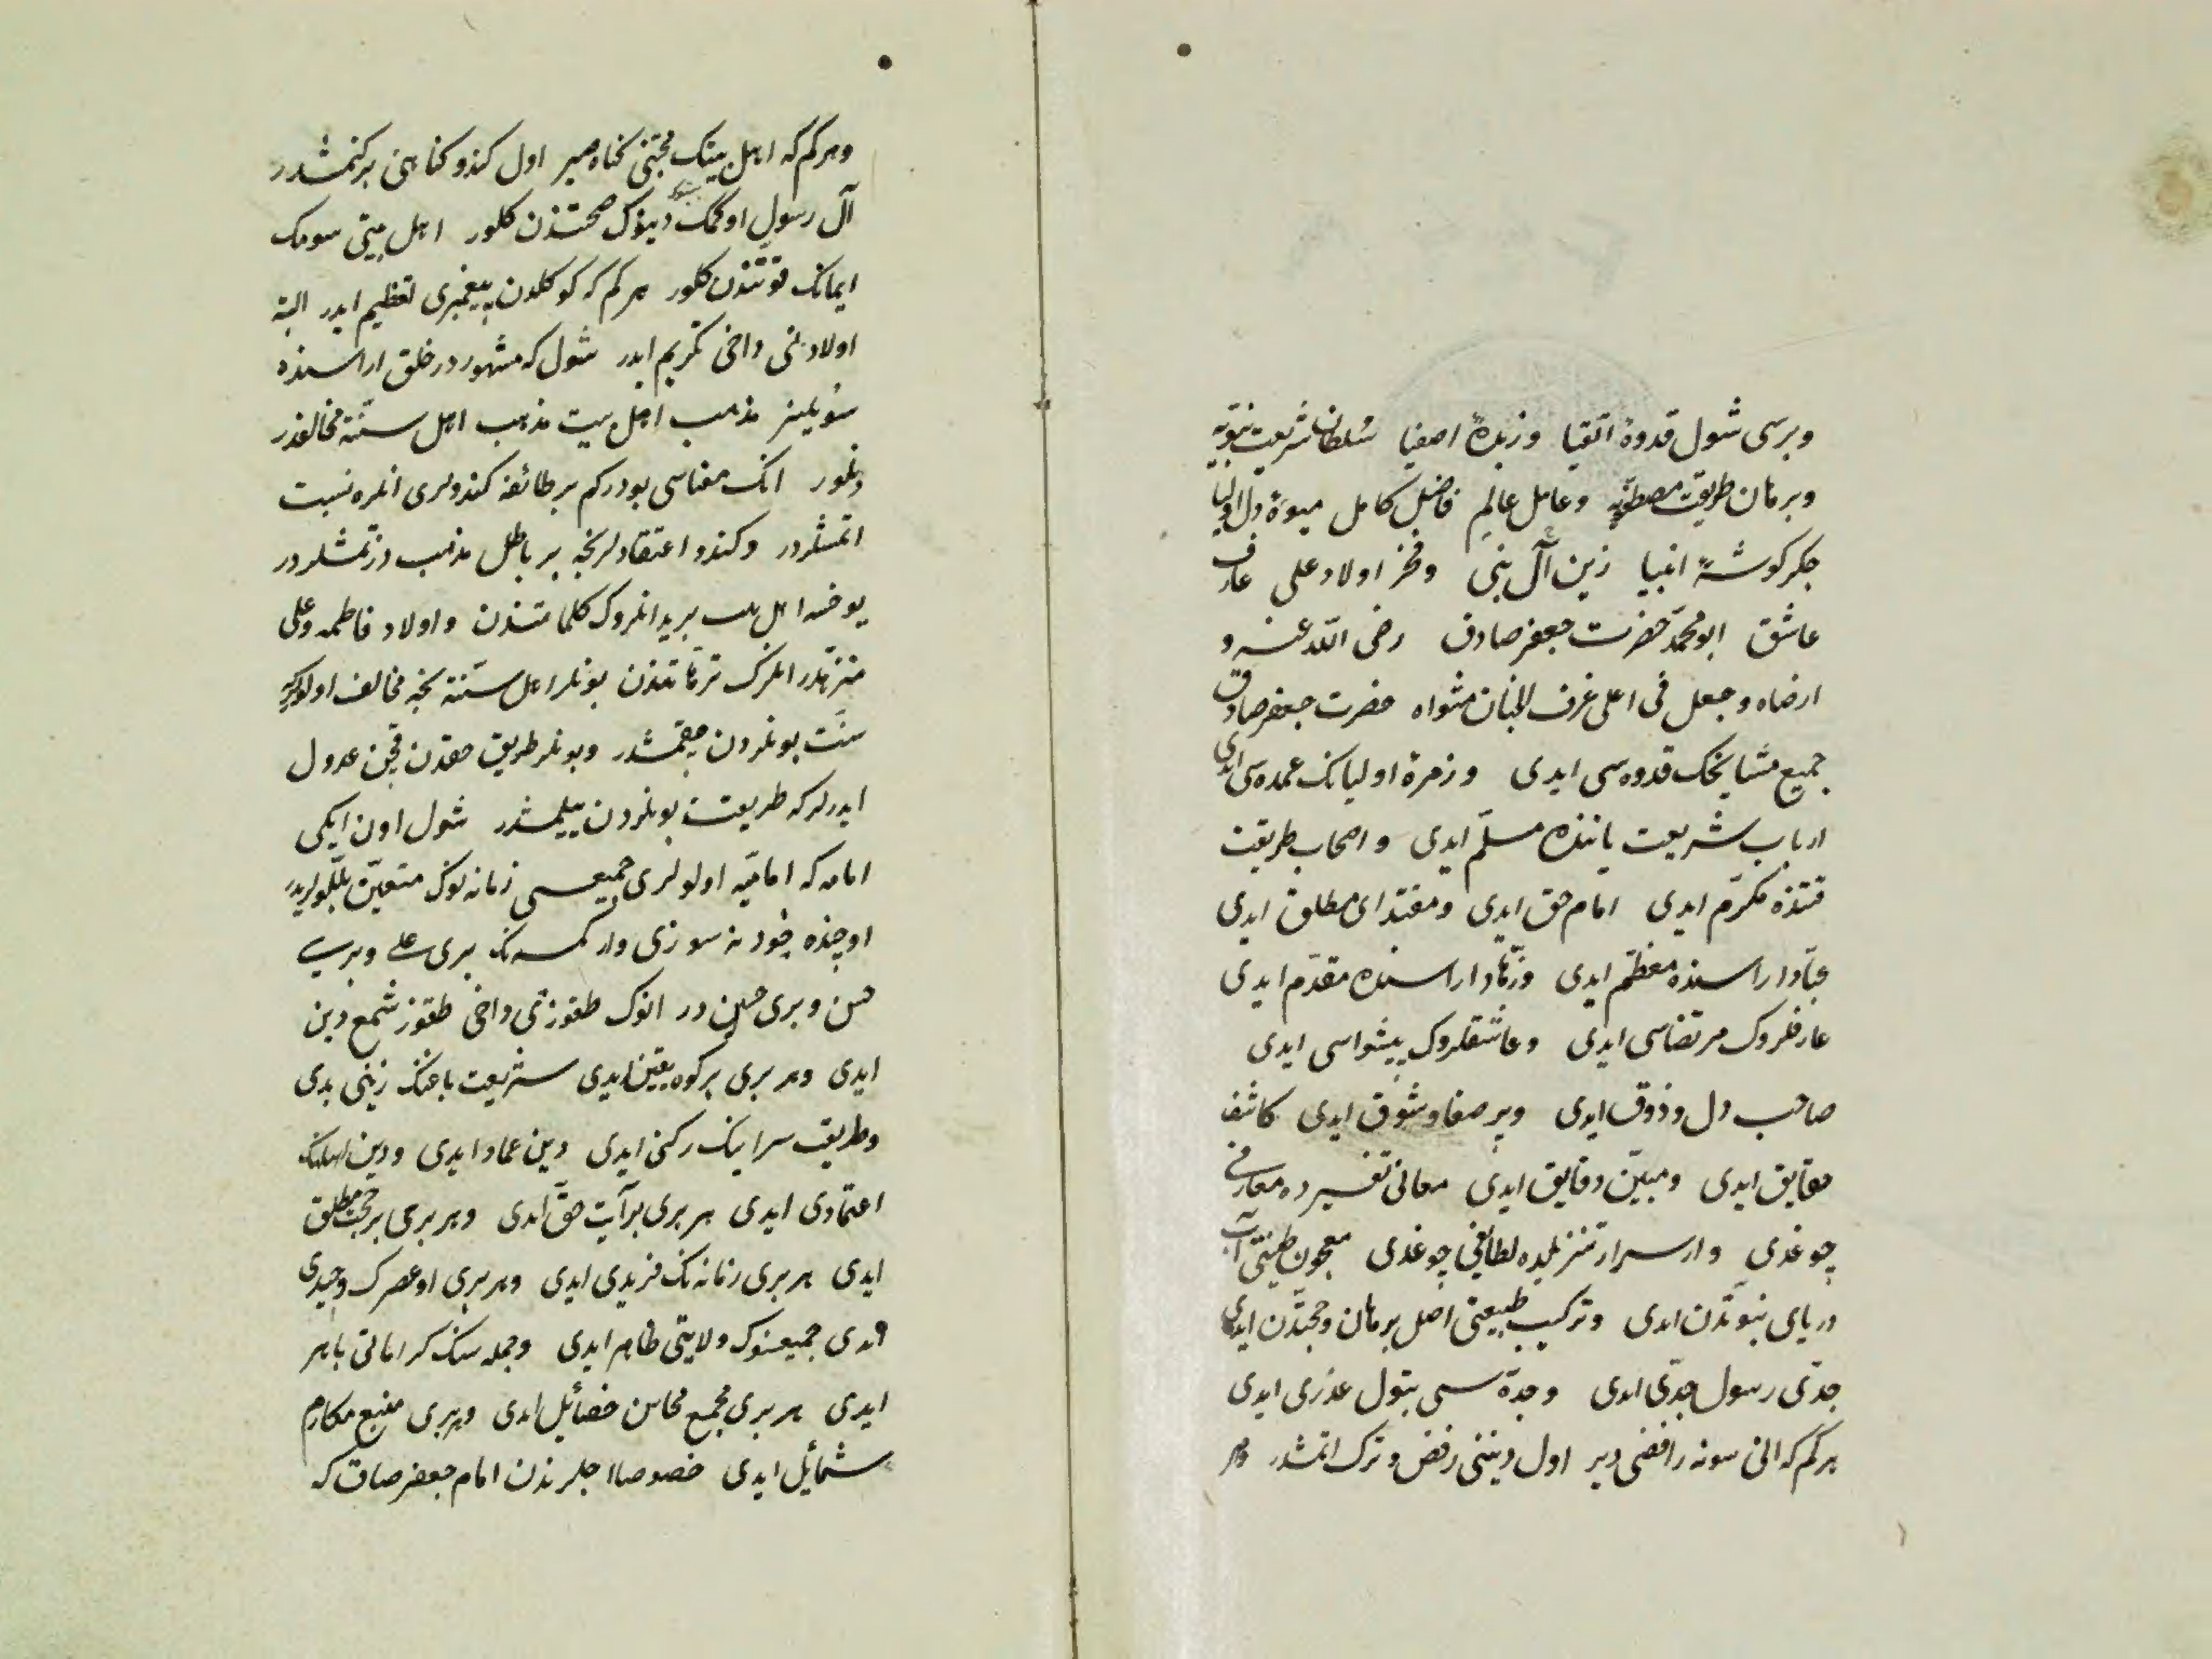 وبرسی شول قدوهٔ اتقیا وزبدهٔ اصفیا سُلطان شریعت نبویّه
وبرهان طریقت مصطفویّه وعامل عالِم فاضل کامل میوهٔ دل اولیا
جکرکوشهٔ انبیا زین آل نبی وفخر اولاد علی عارف
عاشق ابو محمّد حضرت جعفر صادق رضی الله عنه و
ارضاه وجعل فی اعلی غرف الجنان مثواه حضرت جعفر صادق
جمیع مشایخک قدوه سی ایدی وزمرهٔ اولیانک عمده سی ایدی
ارباب شریعت یاننده مسلّم ایدی و اصحاب طریقت
قتنده مکرّم ایدی امام حق ایدی ومقتدای مطلق ایدی
عبّاد اراسنده معظّم ایدی وزهّاد اراسنده مقدّم ایدی
عارفلروک مرتضاسی ایدی وعاشقلروک پیشواسی ایدی
صاحب دل وذوق ایدی وپر صفا وشوق ایدی کاشف
حقایق ایدی ومبیّن دقایق ایدی معانی تفسیرده معارفی
چوغدی واسرار تنزیلده لطائفی چوغدی معجون طینتی آب
دریای نبوّتدن ایدی وترکیب طبیعتی اصل برهان وحجّتدن ایدی
جدّی رسول جدّی ایدی وجدّه سی بتول عذری ایدی
هرکم که انی سونه رافضی دیر اول دیننی رفض و ترک اتمشدر وهر
وهرکم که اهل بیتک محبّتنی کناه صیر اول کندو کناهنی برکتمشدر
آل رسول اوکمک دینوک صحتندن کلور اهل بیتی سومک
ایمانک قوّتندن کلور هرکم که کوکلدن پیغمبری تعظیم ایدر البته
اولادنی داخی تکریم ایدر شول که مشهوردر خلق اراسنده
سویلینر مذهب اهل بیت مذهب اهل سنّته مخالفدر
دنلور انک معناسی بودرکم بر طائفه کندولری انلره نسبت
اتمشلردر وکندو اعتقادلرنجه بر باطل مذهب دزتمشلردر
یوخسه اهل بیت بریدر انلروک کلماتندن و اولاد فاطمه وعلی
منزّهدر انلرک ترّهاتندن بونلر اهل سنّته نجه مخالف اولور که
سنّت بونلردن چقمشدر وبونلر طریق حقدن قچن عدول
ایدرلر که طریقت بونلردن بیلیمشدر شول اون ایکی
امام که امامیّه اولولری جمیعسی زمانه لوک متعیّن بللّولریدر
اوچنده خود نه سوزی وار کمسه نک بری علی وبریسی
حسن وبری حسین در انوک طقوزنی داخی طقوز شمع دین
ایدی وهر بری بر کوه یقین ایدی شریعت باغنک زینی بدی
وطریقت سراینک رکنی ایدی دین عماد ایدی ودین اهلنک
اعتمادی ایدی هر بری بر آیت حق ایدی وهر بری بر حجّت مطلق
ایدی هر بری زمانه نک فریدی ایدی وهر بری اوعصرک وحیدی
ایدی جمیعنوک ولایتی ظاهر ایدی وجمله سنک کراماتی باهر
ایدی هر بری مجمع محاسن خصائل ایدی وهر بری منبع مکارم
شمائل ایدی خصوصا اجلرندن امام جعفر صادق که